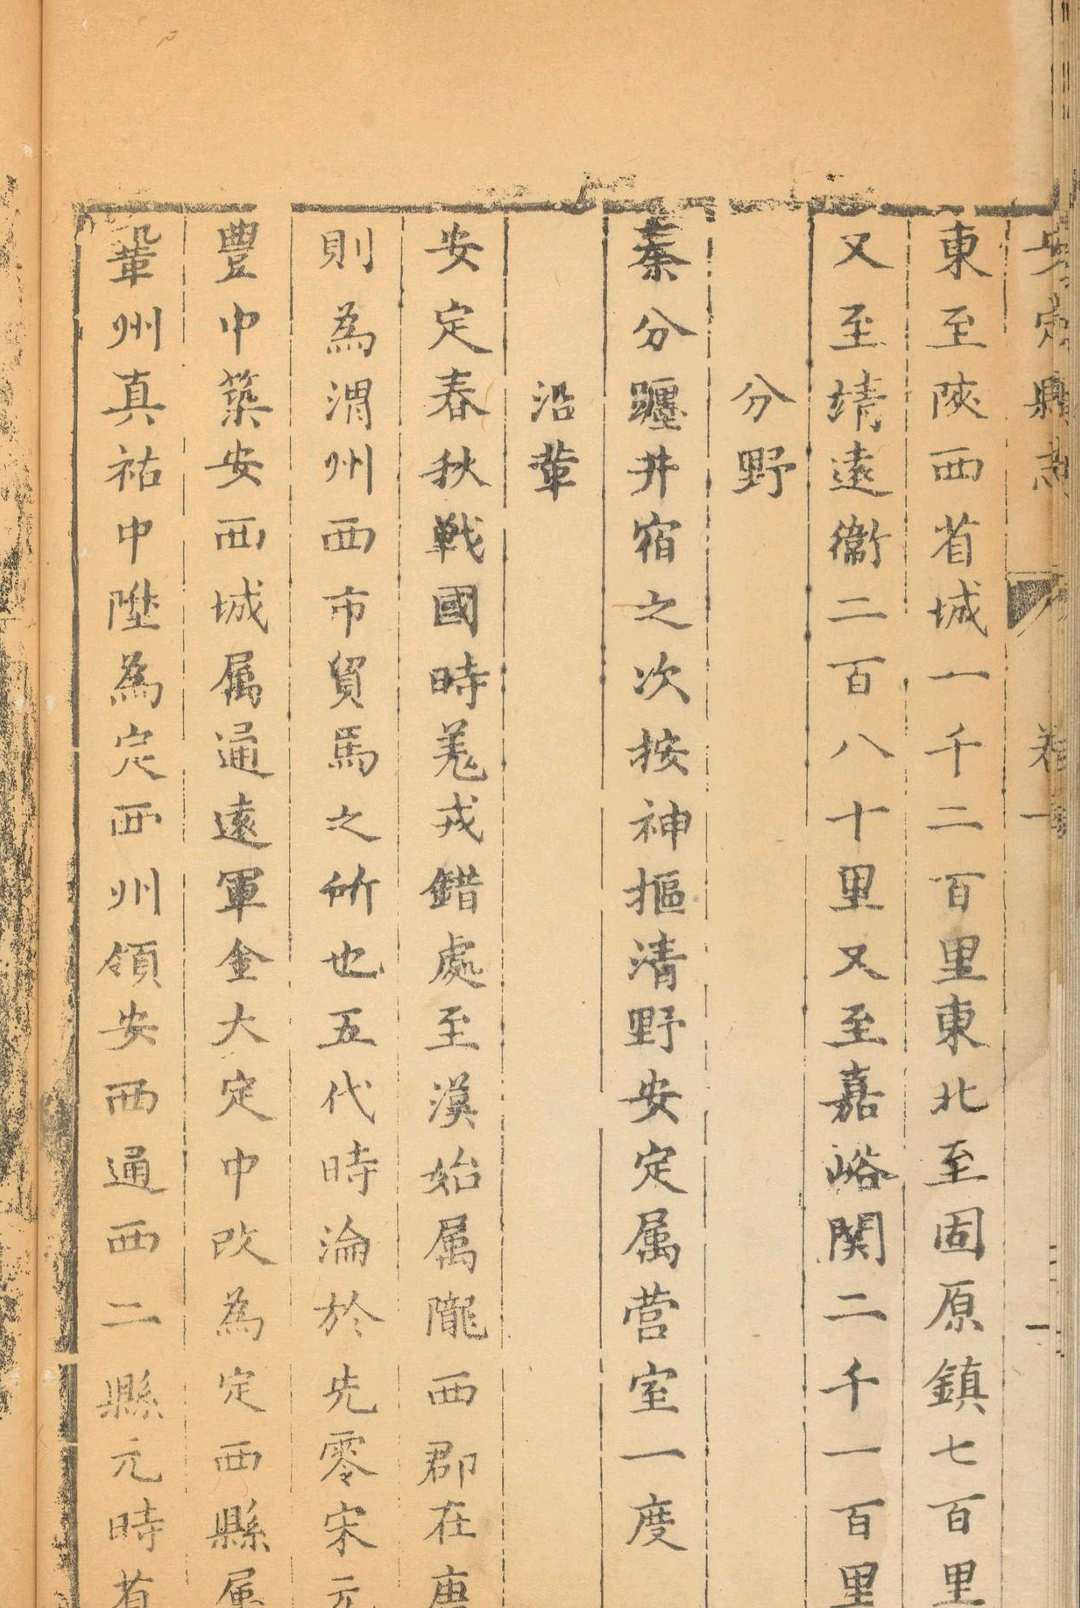 安定縣志 卷一 一
東至陜西省城一千二百里東北至固原鎮七百里
又至靖遠衛二百八十里又至嘉峪関二千一百里
分野
秦分躔井宿之次按神摳清野安定属营室一度
沿革
安定春秋戰國時羌戎錯處至漢始属隴西郡在唐
則為渭州西市貿馬之所也五代時淪於先零宋元
豐中築安西城属通遠軍金大定中改為定西縣属
鞏州真祐中陞為定西州領安西通西二縣元時省